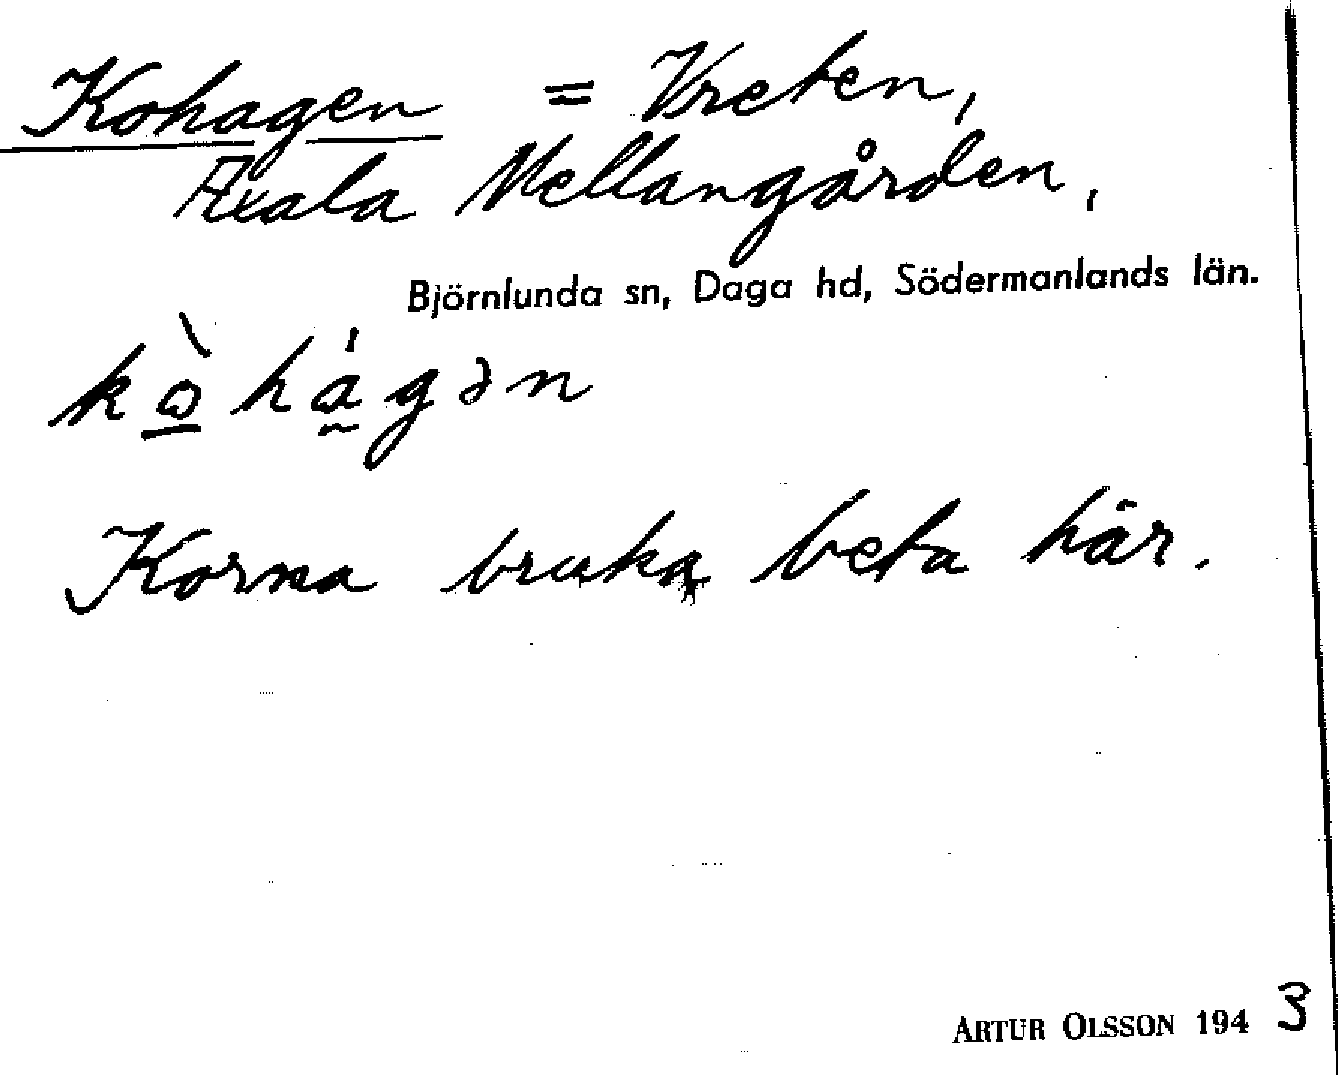 Kohagen = Vreten,
Axala Mellangården,
Björnlunda sn, Daga hd, Södermanlands län.
kò̱há̰gən
Korna bruka beta här.
ARTUR OLSSON 1943